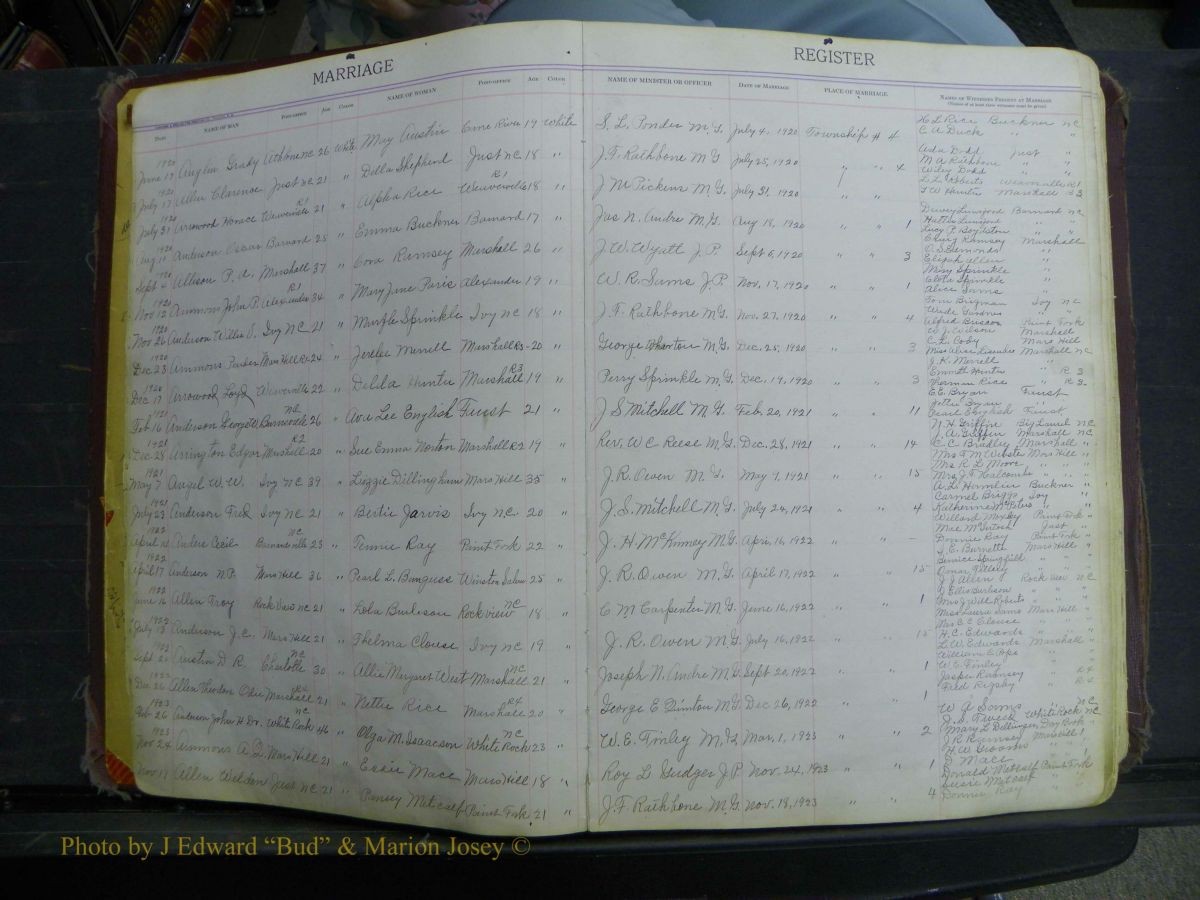 MARRIAGE REGISTER
DATE NAME OF MAN POST-OFFICE AGE COLOR NAME OF WOMAN POST-OFFICE AGE COLOR NAME OF MINISTER OR OFFICER DATE OF MARRIAGE PLACE OF MARRIAGE NAMES OF WITNESSES PRESENT AT MARRIAGE
1920 June 19 Anglin Grady NC 26 White May Austin Cane River 19 White S. L. Ponder M.G. July 4, 1920 Township # 4 H L Rice Buckner NC
C A Duck " "
1920 July 17 Allen Clarence Just NC 21 " Della Shepherd Just N.C. 18 " J. F. Rathbone M G July 25, 1920 " " 4 Ada Dodd Just "
M A Rathbone " "
Wiley Dodd " "
1920 July 31 Arrowood Horace Weaverville R1 21 " Alpha Rice Weaverville R1 18 " J M Pickens M.G. July 31, 1920 " " L L Roberts Weaverville R1
T W Hunter Marshall R3
1920 Aug 11 Anderson Oscar Barnard 25 " Emma Buckner Barnard 17 " Jas N. Andre M.G. Aug 18, 1920 " " 1 Dewey Lunsford Barnard NC
Hattie Lunsford " "
Lucy P. Boydston " "
1920 Sept 4 Allison P. A. Marshall 37 " Cora Ramsey Marshall 26 " J. W. Wyatt J.P. Sept 5, 1920 " " 3 Ramsey Marshall
Edmonds "
Elijah Allen "
1920 Nov 12 Ammons John P. Alexander R1 34 " Mary Jane Paris Alexander 19 " W. R. Sams J.P. Nov. 17, 1920 " " 1 Mary Sprinkle "
Clota Sprinkle "
Alice Sams "
1920 Nov 26 Anderson Willie V. Ivy NC 21 " Myrtle Sprinkle Ivy NC 18 " J. F. Rathbone M.G. Nov. 27, 1920 " " 4 Tom Brigman Ivy NC
Wade Gardner " "
Alfred Briscoe Paint Fork
1920 Dec 23 Ammons Parker Mars Hill R2 24 " Jerdee Merrell Marshall R3 20 " George Wharton M.G. Dec. 25, 1920 " " 3 W. J. Wilson Marshall
C. L. Coby Mars Hill
Marshall NC
1920 Dec 17 Arrowood Loyd Weaverville 22 " Delila Hunter Marshall R3 19 " Perry Sprinkle M.G. Dec. 19, 1920 " " 3 J. K. Merrell
Emmett Hunter " R 3
Sherman Rice " R 3
1921 Feb 16 Anderson George W. Barnardsville NC 26 " Ava Lee English Faust 21 " J S Mitchell M G. Feb. 20, 1921 " " 11 E E. Bryan Faust
Jettie Bryan "
Pearl English Faust
1921 Dec 28 Arrington Edgar Marshall R2 20 " Sue Emma Norton Marshall R2 19 " Rev. W C Reese M.G. Dec. 28, 1921 " " 14 N. H. Griffin Big Laurel NC
A. Griffin Marshall NC
C C Bradley Marshall "
1921 May 7 Angel W. W. Ivy NC 39 " Lizzie Dillingham Mars Hill 35 " J. R. Owen M.G. May 9, 1921 " " 15 Mrs F M Webster Mars Hill "
Mrs R L Moore " " "
Mrs. J F Halcombe " "
1921 July 23 Anderson Fred Ivy NC 21 " Bertie Jarvis Ivy N.C. 20 " J. S. Mitchell M.G. July 24, 1921 " " 4 A. L. Hamlin Buckner "
Carmel Briggs Ivy "
Katherine McPeters " "
1922 April Anders Cecil Barnardsville NC 23 " Tennie Ray Paint Fork 22 " J. H. McKinney M G. April 16, 1922 " " Willard Mosley Paint Fork "
Mae McIntosh Just "
Donnie Ray Paint Fork "
1922 April 17 Anderson N.P. Mars Hill 36 " Pearl L. Winston Salem 25 " J. R. Owen M.G. April 17, 1922 " " 15 T. E. Burnette Mars Hill "
Bernice Springfield " "
Omar Tilley " "
1922 June 16 Allen Troy Rock View NC 21 " Lola Burleson Rockview NC 18 " C M Carpenter M.G. June 16, 1922 " " 1 J J Allen Rock View NC
J Ellis Burleson " "
Mrs J Will Roberts " "
1922 July 13 Anderson J. C. Mars Hill 21 " Thelma Clouse Ivy NC 19 " J. R. Owen M.G. July 16, 1922 " " 15 Miss Laura Sams Mars Hill "
Mrs E C Clouse " "
H. C. Edwards " "
1922 Sept 2 Austin D R. Charlotte NC 30 " Allie Margaret West Marshall NC 21 " Joseph N. Andre M.G. Sept 20, 1922 " " 1 L. W. Edwards Marshall "
William E. " "
W. E. Finley " "
1922 Dec 26 Allen Theodore Odie Marshall R4 21 " Nettie Rice Marshall R4 20 " George E Dinton M.G. Dec 26, 1922 " " 1 Jasper Ramsey " R4
Fred Rigsby " R4
W A Sams
1923 Feb 26 Anderson John H. Dr. White Rock NC 46 " Olga M. Isaacson White Rock NC 23 " W. E. Finley M.G. Mar. 1, 1923 " " 2 White Rock NC
Mary L Dillinger Day Book "
J R Ramsey Marshall
1923 Nov 24 Ammons A. D. Mars Hill 21 " Essie Mace Mars Hill 18 " Roy L Gudger J.P. Nov. 24, 1923 " " 1 H W Grooms "
J Mace
1923 Nov 17 Allen Weldon Just NC 21 " Pansy Metcalf Paint Fork 21 " J. F. Rathbone M.G. Nov. 18, 1923 " " 4 Donald Metcalf Paint Fork
Susie Metcalf "
Donnie Ray "
Photo by J Edward “Bud” & Marion Josey ©